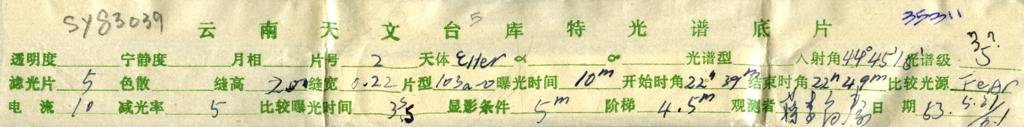 SY83039 云南天文台库特光谱底片
透明度 宁静度 月相 片号 2 天体 α δ 光谱型 入射角 44°45' 光谱级 5
滤光片 5 色散 缝高 200 缝宅 0.22 片型 103a-0 曝光时间 10m 开始时角 22h39m 结束时角 22h49m 比较光源 FeAr
电流 10 减光率 5 比较曝光时间 显影条件 5m 阶梯 4.5m 观测者 日期 83.